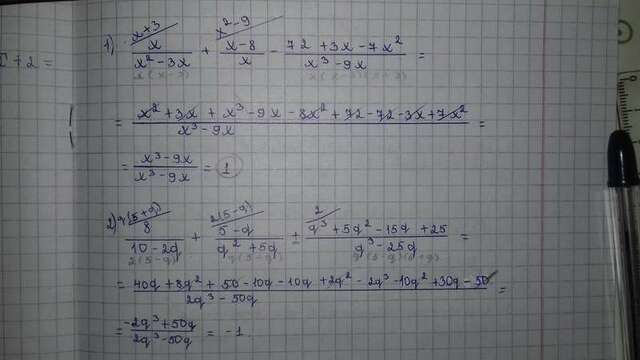 x+3 x²-9
1) x/(x²-3x) + (x-8)/x - (72+3x-7x²)/(x³-9x) =
x(x-3) x(x-3)(x+3)
= (x²+3x+x³-9x-8x²+72-72-3x+7x²)/(x³-9x) =
= (x³-9x)/(x³-9x) = 1
q(5+q) 2(5-q) 2
2) 8/(10-2q) + (5-q)/(q²+5q) ± (q³+5q²-15q+25)/(q³-25q) =
2(5-q)
= (40q+8q²+50-10q-10q+2q²-2q³-10q²+30q-50)/(2q³-50q) =
= (-2q³+50q)/(2q³-50q) = -1